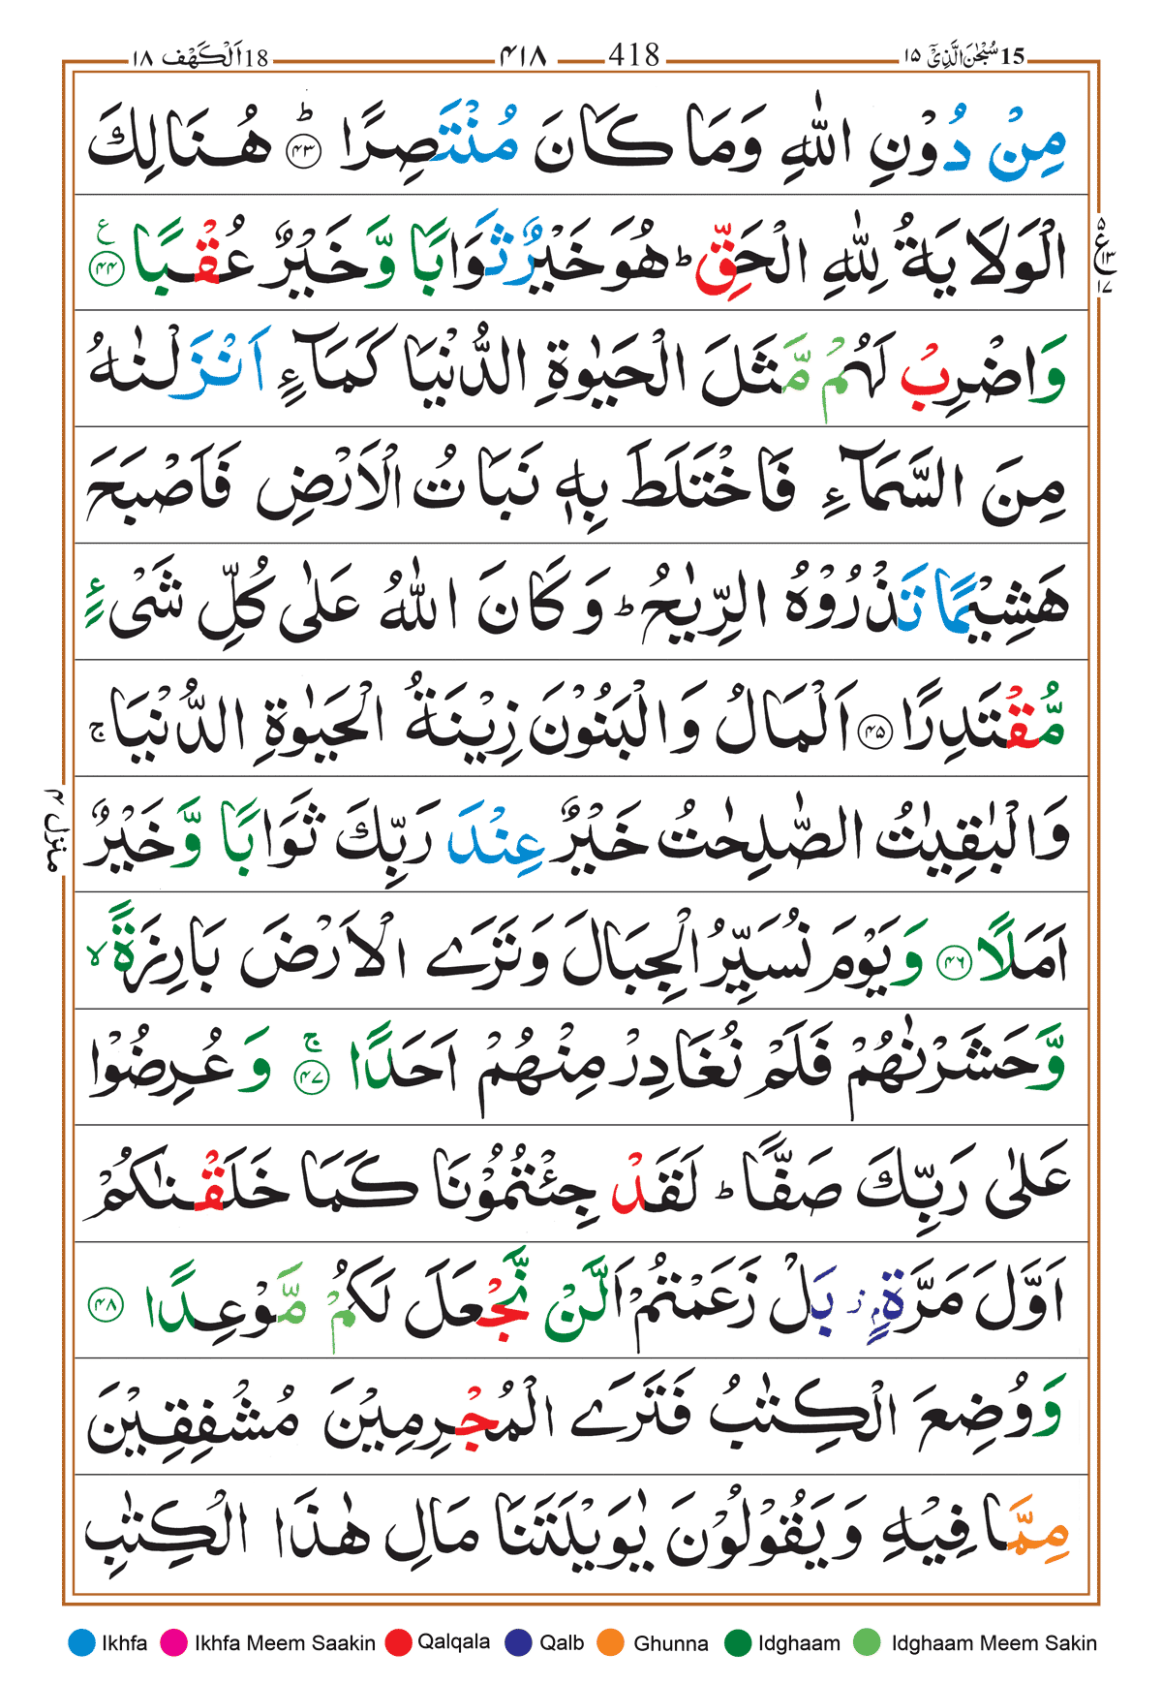 15 سُبْحٰنَ الَّذِیْۤ ۱۵ 418 ۴۱۸ 18 اَلْكَهْف ۱۸
مِنْ دُوْنِ اللّٰهِ وَمَا كَانَ مُنْتَصِرًا ؕ﴿۴۳﴾ هُنَالِكَ
الْوَلَایَةُ لِلّٰهِ الْحَقِّ ؕ هُوَ خَیْرٌ ثَوَابًا وَّ خَیْرٌ عُقْبًا ﴿۴۴﴾ ع
ع ۵ ۱۳ ۱۷
وَاضْرِبْ لَهُمْ مَّثَلَ الْحَیٰوةِ الدُّنْیَا كَمَآءٍ اَنْزَلْنٰهُ
مِنَ السَّمَآءِ فَاخْتَلَطَ بِهٖ نَبَاتُ الْاَرْضِ فَاَصْبَحَ
هَشِیْمًا تَذْرُوْهُ الرِّیٰحُ ؕ وَ كَانَ اللّٰهُ عَلٰی كُلِّ شَیْءٍ
مُّقْتَدِرًا ﴿۴۵﴾ اَلْمَالُ وَ الْبَنُوْنَ زِیْنَةُ الْحَیٰوةِ الدُّنْیَا ۚ
وَالْبٰقِیٰتُ الصّٰلِحٰتُ خَیْرٌ عِنْدَ رَبِّكَ ثَوَابًا وَّ خَیْرٌ
منزل ۴
اَمَلًا ﴿۴۶﴾ وَ یَوْمَ نُسَیِّرُ الْجِبَالَ وَ تَرَی الْاَرْضَ بَارِزَةً ۙ
وَّ حَشَرْنٰهُمْ فَلَمْ نُغَادِرْ مِنْهُمْ اَحَدًا ۚ﴿۴۷﴾ وَ عُرِضُوْا
عَلٰی رَبِّكَ صَفًّا ؕ لَقَدْ جِئْتُمُوْنَا كَمَا خَلَقْنٰكُمْ
اَوَّلَ مَرَّةٍۭ ؗ بَلْ زَعَمْتُمْ اَلَّنْ نَّجْعَلَ لَكُمْ مَّوْعِدًا ﴿۴۸﴾
وَ وُضِعَ الْكِتٰبُ فَتَرَی الْمُجْرِمِیْنَ مُشْفِقِیْنَ
مِمَّا فِیْهِ وَ یَقُوْلُوْنَ یٰوَیْلَتَنَا مَالِ هٰذَا الْكِتٰبِ
Ikhfa Ikhfa Meem Saakin Qalqala Qalb Ghunna Idghaam Idghaam Meem Sakin